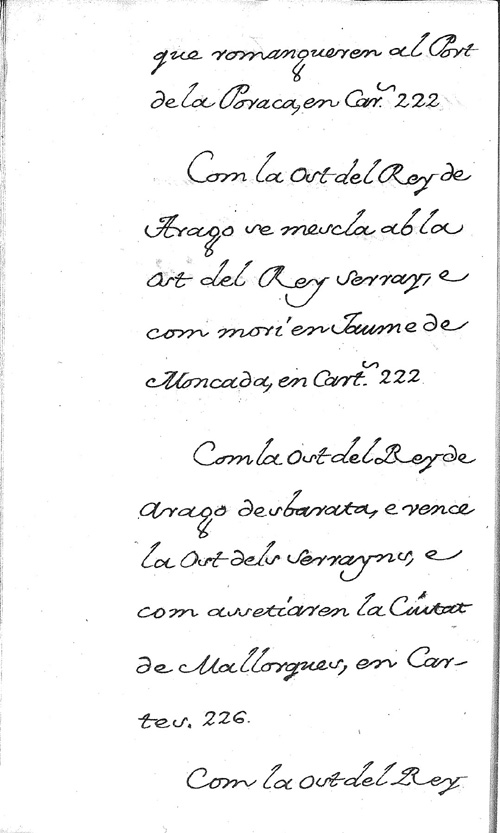 que romangueren al Port
de la Poraca, en Car.ª 222
Com la Ost del Rey de
Arago se mescla ab la
Ost del Rey Serray, e
com mori en Jaume de
Moncada, en Cart.ª 222
Com la Ost del Rey de
Arago desbarata, e vence
la Ost dels Serrayns, e
com assetiaren la Ciutat
de Mallorques, en Car-
tes. 226.
Com la Ost del Rey